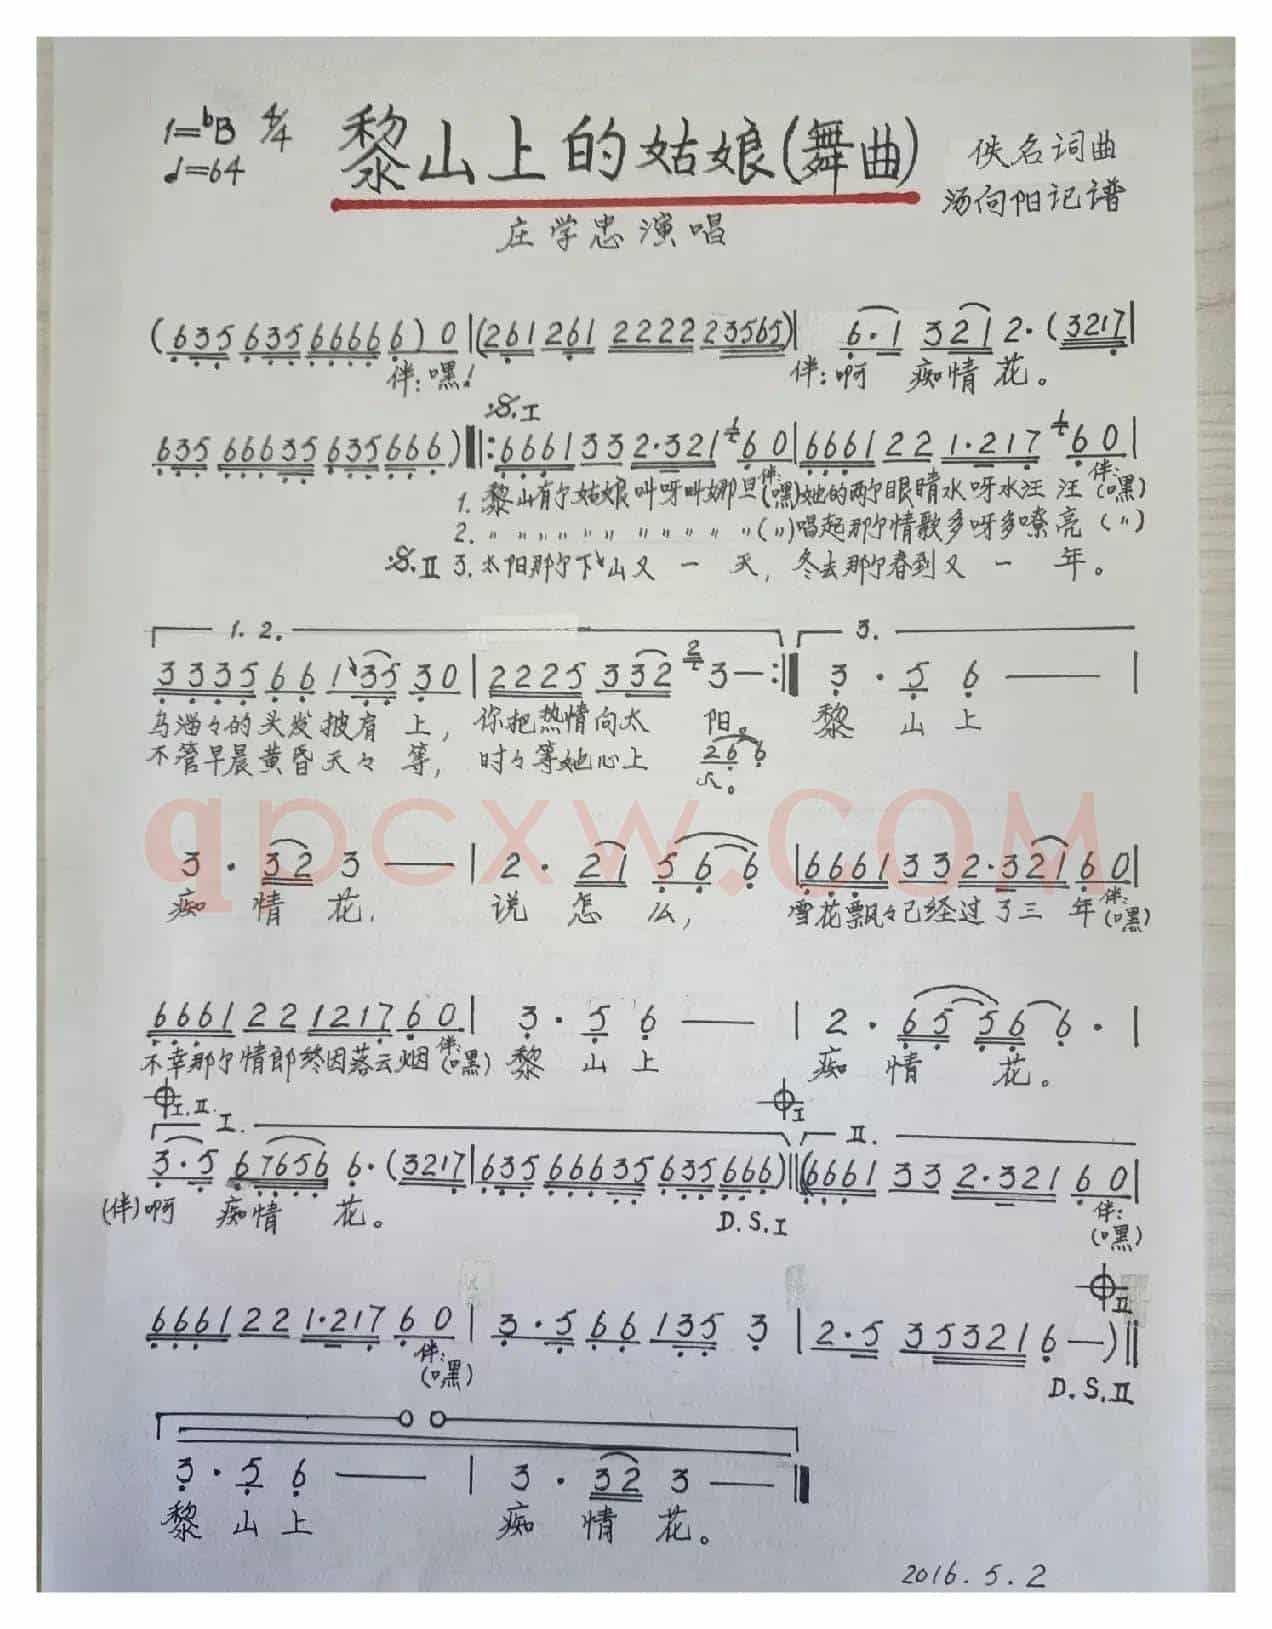 1=♭B 4/4
♩=64
黎山上的姑娘(舞曲)
佚名词曲
汤向阳记谱
庄学忠演唱
(635 635 6666 6) 0 | (261 261 2222 23565) | 6·1 321 2·(3217 |
伴:嘿! 伴:啊 痴情花。
:S.I
635 66635 635 666) ‖: 6661 33 2·321 6 0 | 6661 22 1·217 6 0 |
1. 黎山有个姑娘叫呀叫娜旦 伴:(嘿) 她的两个眼睛水呀水汪汪 伴:(嘿)
2. 〃〃〃〃〃〃〃〃〃〃(〃) 唱起那个情歌多呀多嘹亮(〃)
:S.II 3. 太阳那个下山又一天, 冬去那个春到又一年。
1. 2. 3.
3335 66 135 30 | 2225 332 3— :‖ 3·5 6 — |
乌溜々的头发披肩上, 你把热情向太阳。 黎山上
266
不管早晨黄昏天々等, 时々等她心上人。
qpcxw.COM
3·32 3 — | 2·21 566 | 6661 33 2·321 60 |
痴情花, 说怎么, 雪花飘々已经过了三年 伴:(嘿)
6661 22 1217 60 | 3·5 6 — | 2·65 56 6· |
不幸那个情郎终因落云烟 伴:(嘿) 黎山上 痴情花。
I.II. I
I. II.
3·5 67656 6·(3217 | 635 66635 635 666) ‖ (6661 33 2·321 60 |
(伴)啊 痴情花。 D.S.I 伴:(嘿)
II
6661 22 1·217 60 | 3·5 66 135 3 | 2·5 353321 6 —) ‖
伴:(嘿) D.S.II
3·5 6 — | 3·32 3 — ‖
黎山上 痴情花。
2016.5.2